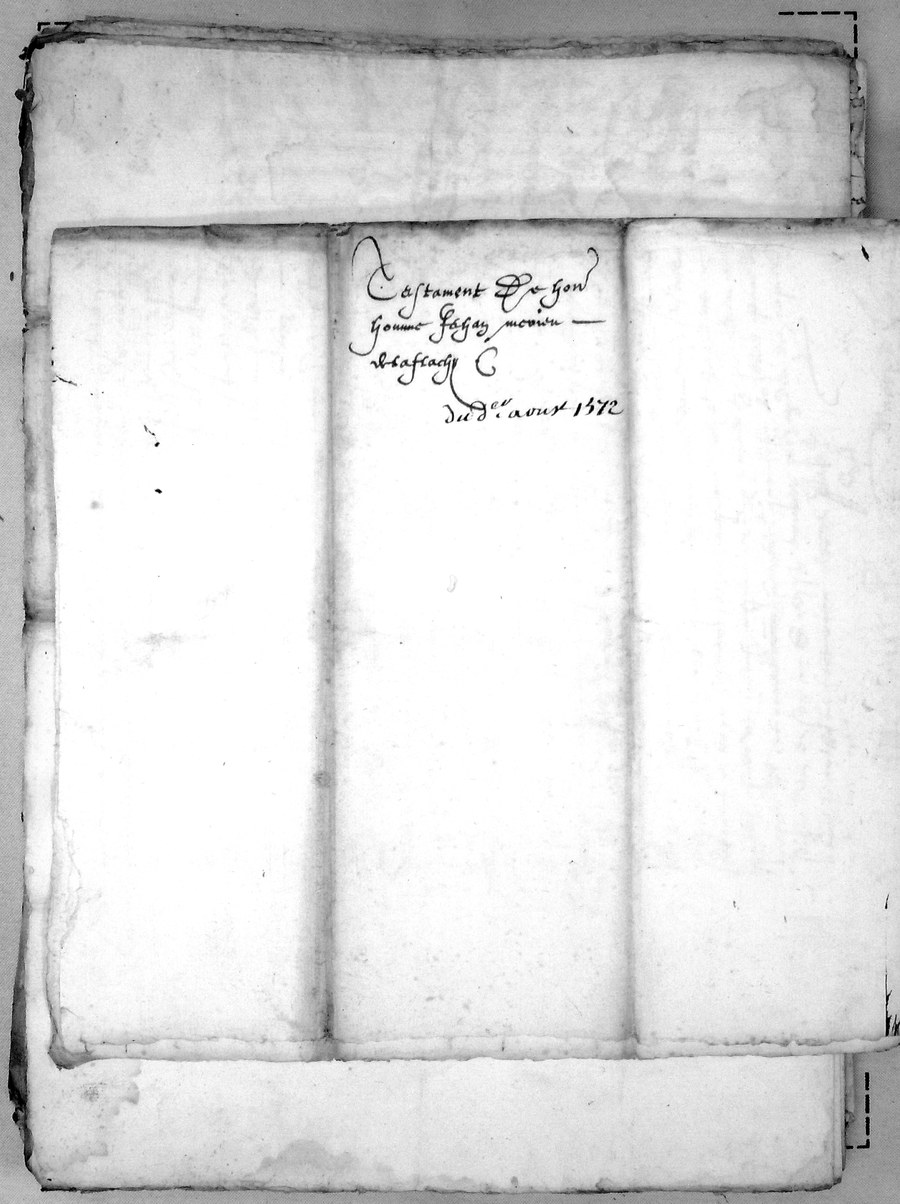 Testament De hon
homme Jehan merieu —
delaflachy C
du d.er aoust 1572